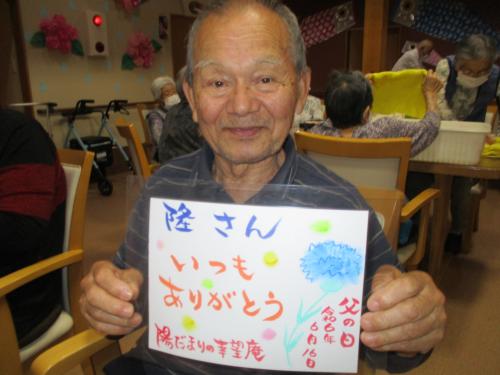 隆さん
いつも
ありがとう
陽だまりの幸望庵
父の日
令和6年
6月16日